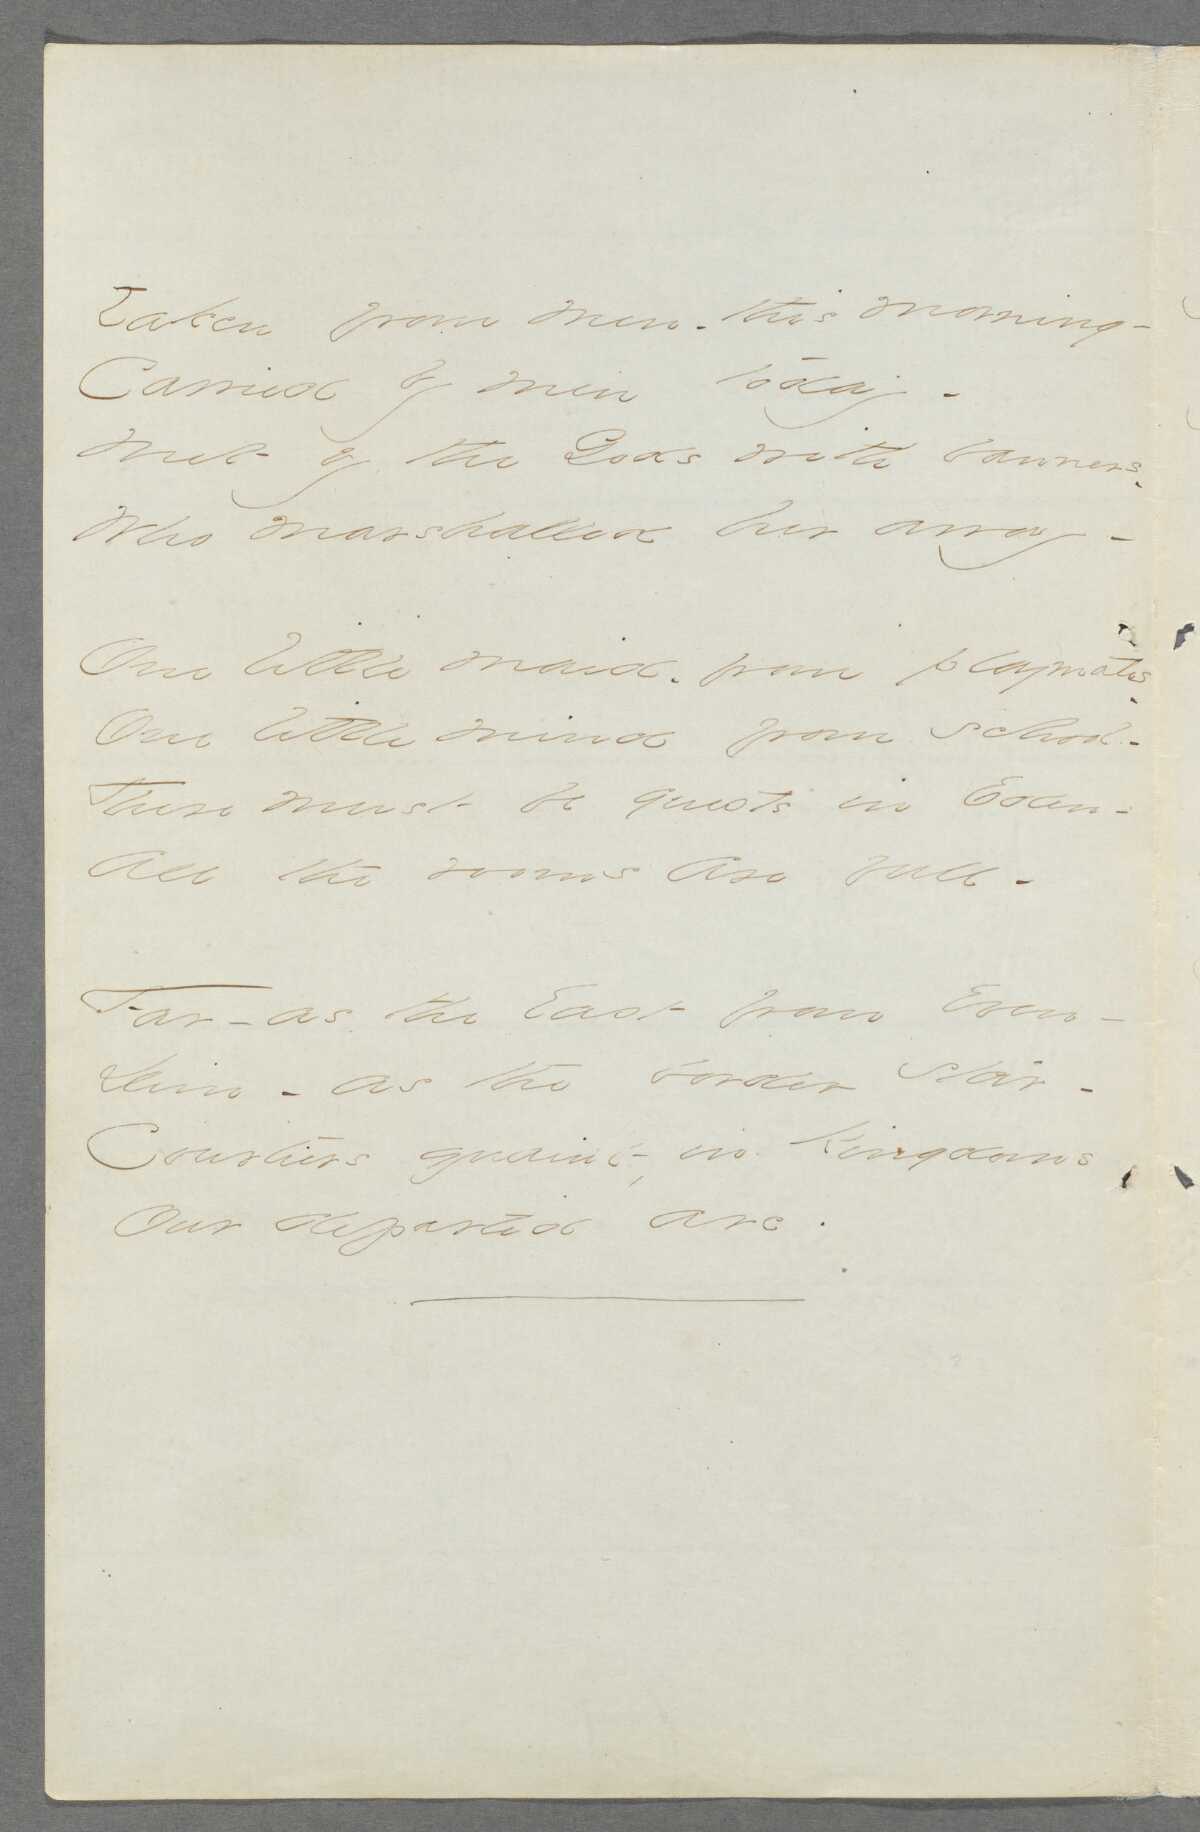 Taken from men - this morning -
Carried by men today -
Met by the Gods with banners -
Who marshalled her away -

One little maid - from playmates -
One little mind from school -
There must be guests in Eden -
All the rooms are full -

Far - as the East from Even -
Dim - as the border star -
Courtiers quaint, in Kingdoms
Our departed are.